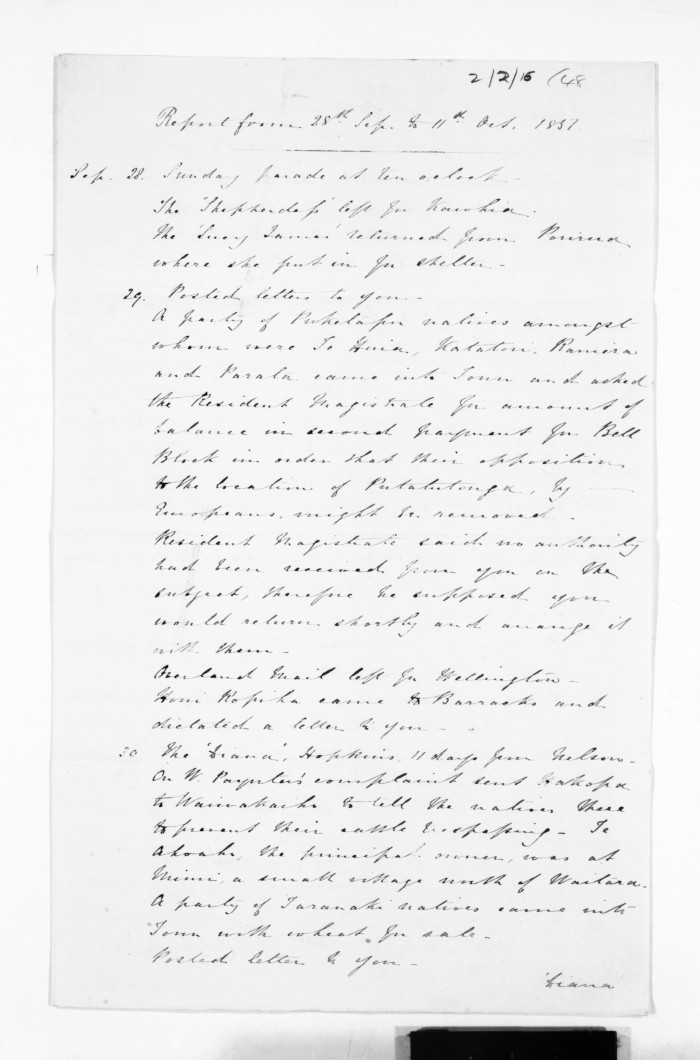 2/2/16 (48
Report from 28th Sep. to 11th Oct. 1851
Sep. 28. Sunday parade at ten o'clock -
The 'Shepherdess' left for Kawhia.
The 'Lucy James' returned from Porirua
where she put in for shelter -
29. Posted letters to you -
A party of Puketapu natives amongst
whom were Te Huia, Katatori, Ramera
and Parata came into Town and asked
the Resident Magistrate for amount of
balance in second payment for Bell
Block in order that their opposition
to the location of Putatutonga, by
Europeans, might be removed -
Resident Magistrate said no authority
had been received from you on the
subject, therefore he supposed you
would return shortly and arrange it
with them -
Overland Mail left for Wellington -
Honi Ropiha came to Barracks and
dictated a letter to you -
30 The 'Diana', Hopkins, 11 days from Nelson -
On W. Paynter's complaint sent Hakopa
to Waiwakaiho to tell the natives there
to prevent their cattle trespassing - Te
the principal owner, was at
Mimi, a small village north of Waitara.
A party of Taranaki natives came into
Town with wheat for sale -
Posted letter to you -
'Diana